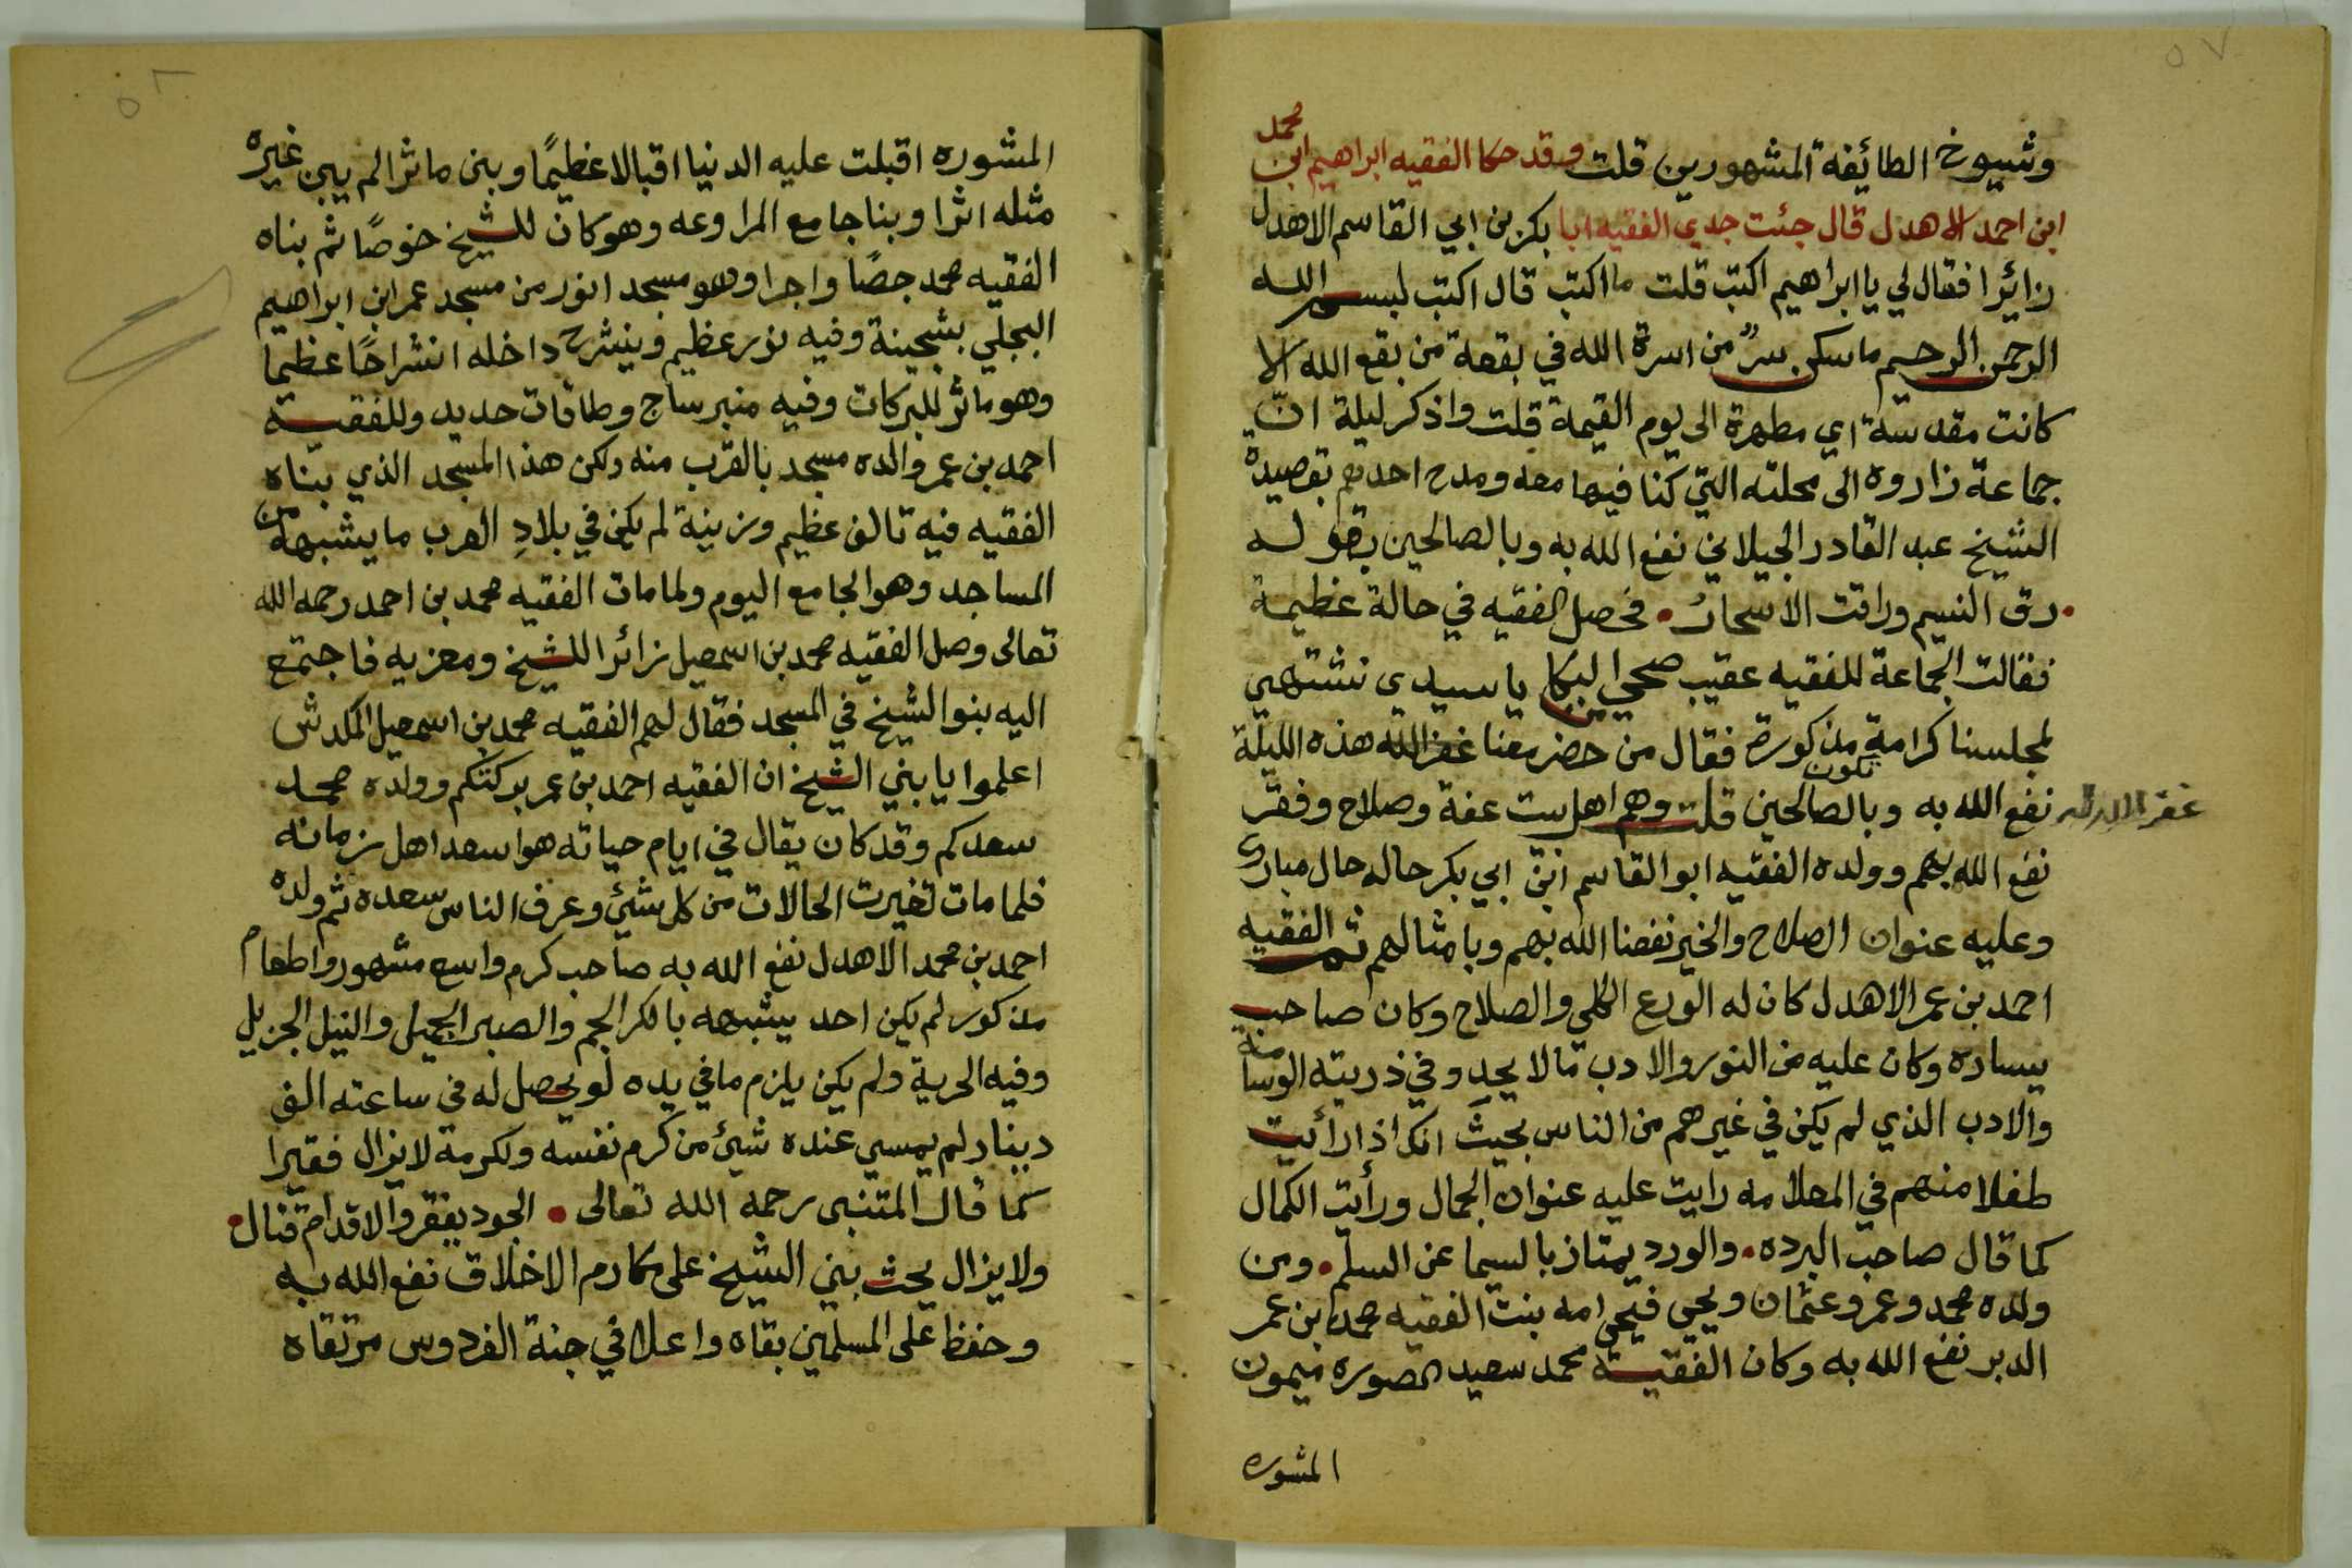 ٥٧
محمد
وشيوخ الطائفة المشهورين قلت وقد حكا الفقيه ابراهيم ابن
ابن احمد الاهدل قال جئت جدي الفقيه ابا بكر بن ابي القاسم الاهدل
زائرا فقال لي يا ابراهيم اكتب قلت ما اكتب قال اكتب لبسم الله
الرحمن الرحيم ما سكن سرٌ من اسرة الله في بقعة من بقع الله الا
كانت مقدسة اي مطهرة الى يوم القيمة قلت واذكر ليلة انّ
جماعة زاروه الى محلته التي كنا فيها معه ومدح احدهم بقصيدة
الشيخ عبد القادر الجيلاني نفع الله به وبالصالحين بقوله
• رق النسيم وراقت الاسحار • فحصل الفقيه في حالة عظيمة
فقالت الجماعة للفقيه عقيب صحي البكا يا سيدي نشتهي
لمجلسنا كرامة مذكورة فقال من حضر معنا غفر الله هذه الليلة
تكون
نفع الله به وبالصالحين قلت وهم اهل بيت عفة وصلاح وفقر
غفر الله له
نفع الله بهم وولده الفقيه ابو القاسم ابن ابي بكر حاله حال مبارك
وعليه عنوان الصلاح والخير نفعنا الله بهم وبامثالهم ثم الفقيه
احمد بن عمر الاهدل كان له الورع الكلي والصلاح وكان صاحب
يساره وكان عليه من النور والادب ما لا يحد وفي ذريته الوسامة
والادب الذي لم يكن في غيرهم من الناس بحيث انك اذا رأئيت
طفلا منهم في المعلامه رايت عليه عنوان الجمال ورأيت الكمال
كما قال صاحب البرده • والورد يمتاز بالسيما عن السلم • ومن
ولده محمد وعمر وعثمان ويحيى فيحيى امه بنت الفقيه محمد ابن عمر
الدبر نفع الله به وكان الفقيه محمد سعيد الصوره ميمون
المشوره
المشوره اقبلت عليه الدنيا اقبالا عظيمًا وبنى ماثرا لم يبن غيره
مثله اثرا وبنا جامع المراوعه وهو كان للشيخ خوصًا ثم بناه
الفقيه محمد جصًا واجرا وهو مسجد انور من مسجد عمر ابن ابراهيم
البجلي بشجينة وفيه نور عظيم وينشرح داخله انشراحًا عظيما
وهو ماثر للبركات وفيه منبر ساج وطاقات حديد وللفقيه
احمد بن عمر والده مسجد بالقرب منه ولكن هذا المسجد الذي بنّاه
الفقيه فيه تالف عظيم وزينة لم يكن في بلادِ العرب ما يشبهه من
المساجد وهو الجامع اليوم ولما مات الفقيه محمد بن احمد رحمه الله
تعالى وصل الفقيه محمد بن اسمعيل زائرا للشيخ ومعزيه فاجتمع
اليه بنو الشيخ في المسجد فقال لهم الفقيه محمد بن اسمعيل المكدش
اعلموا يا بني الشيخ ان الفقيه احمد بن عمر بركتكم وولده محمد
سعدكم وقد كان يقال في ايام حياته هو اسعد اهل زمانه
فلما مات تغيرت الحالات من كل شئ وعرف الناس سعده ثم ولده
احمد بن محمد الاهدل نفع الله به صاحب كرم واسع مشهور واطعام
مذكور لم يكن احد يشبهه بالكرالجم والصبر الجميل والنيل الجزيل
وفيه الحرية ولم يكن يلزم ما في يده لو يحصل له في ساعته الف
دينار لم يمسي عنده شيئ من كرم نفسه ولكرمه لا يزال فقيرا
كما قال المتنبى رحمه الله تعالى • الجود يفقر والاقدام قتال •
ولا يزال يحث بني الشيخ على مكارم الاخلاق نفع الله به
وحفظ على المسلمين بقاه واعلا في جنة الفردوس مرتقاه